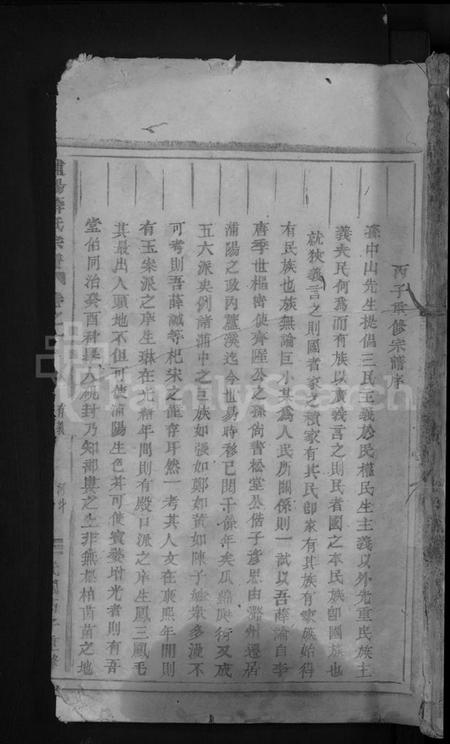 丙子重修宗譜序
孫中山先生提倡三民主義於民權民生主義以外尤重民族主
義夫民何為而有族以廣義言之則民者國之本民族卽國族也
就狹義言之則國者家之積家有其民卽家有其族有家族始得
有民族也族無論巨小其為人民所關係則一試以吾薛論自李
唐季世樞密使齊陞公之孫尚書松堂公偕子彥恩由潞州遷居
浦陽之政內薑溪迄今世易時移已閱千餘年矣瓜綿與衍又成
五六派夫例諸浦中之巨族如張如鄭如黃如陳子姓衆多溪不
可考則吾薛誠等杞宋之僅存耳然一考其人文在康熙年間則
有玉案派之庠生琳在光緒年間則有殿口派之庠生鳳三鳳毛
其最出人頭地不但可使浦陽生色并可使寶婺增光者則有吾
堂伯同治癸酉科舉人硯封乃知鄒與之土非無松柏菑苗之地
浦陽薛氏宗譜 卷之
FamilySearch